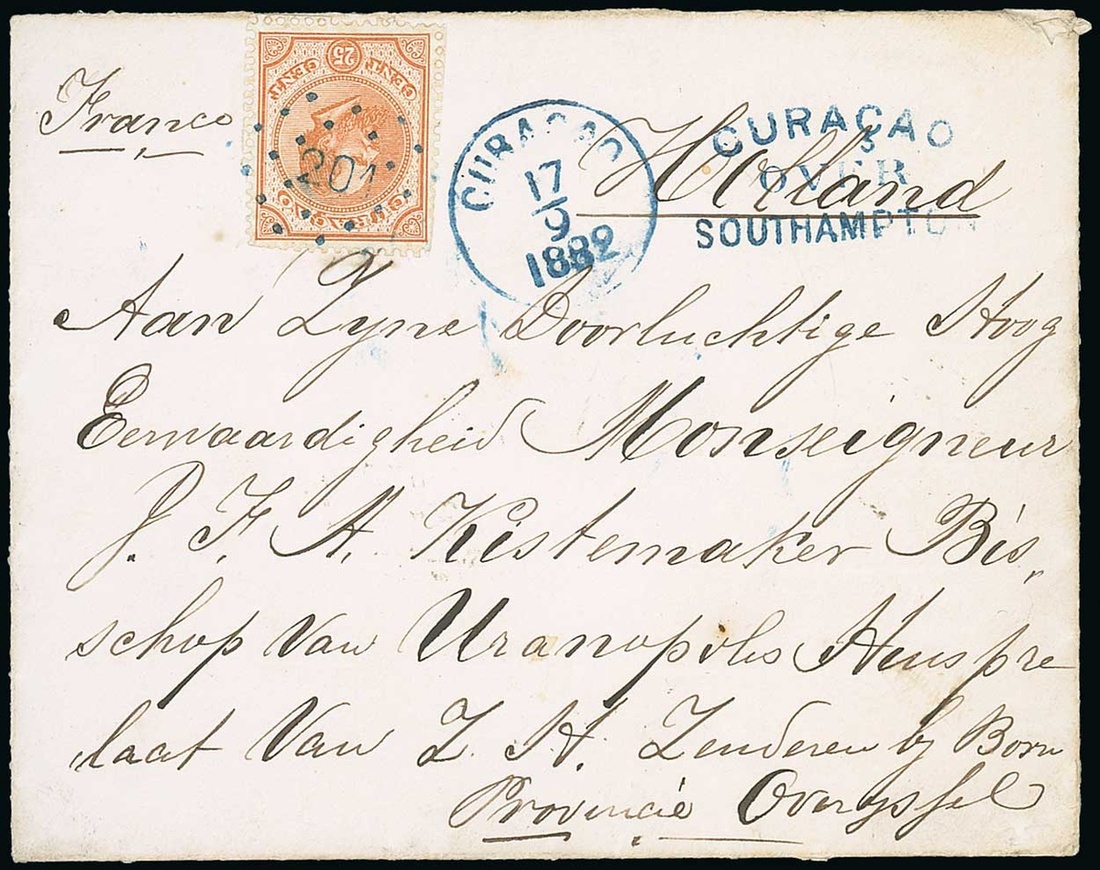 Franco
25
CENT CENT
201
CURAÇAO
17
9
1882
Holland
CURAÇAO
OVER
SOUTHAMPTON
Aan Zyne Doorluchtige Hoog
Eerwaardigheid Monseigneur
J. F. A. Kistemaker Bis„
schop van Uranopolis Huispre
laat van Z. H. Zenderen by Born
Provincie Overyssel